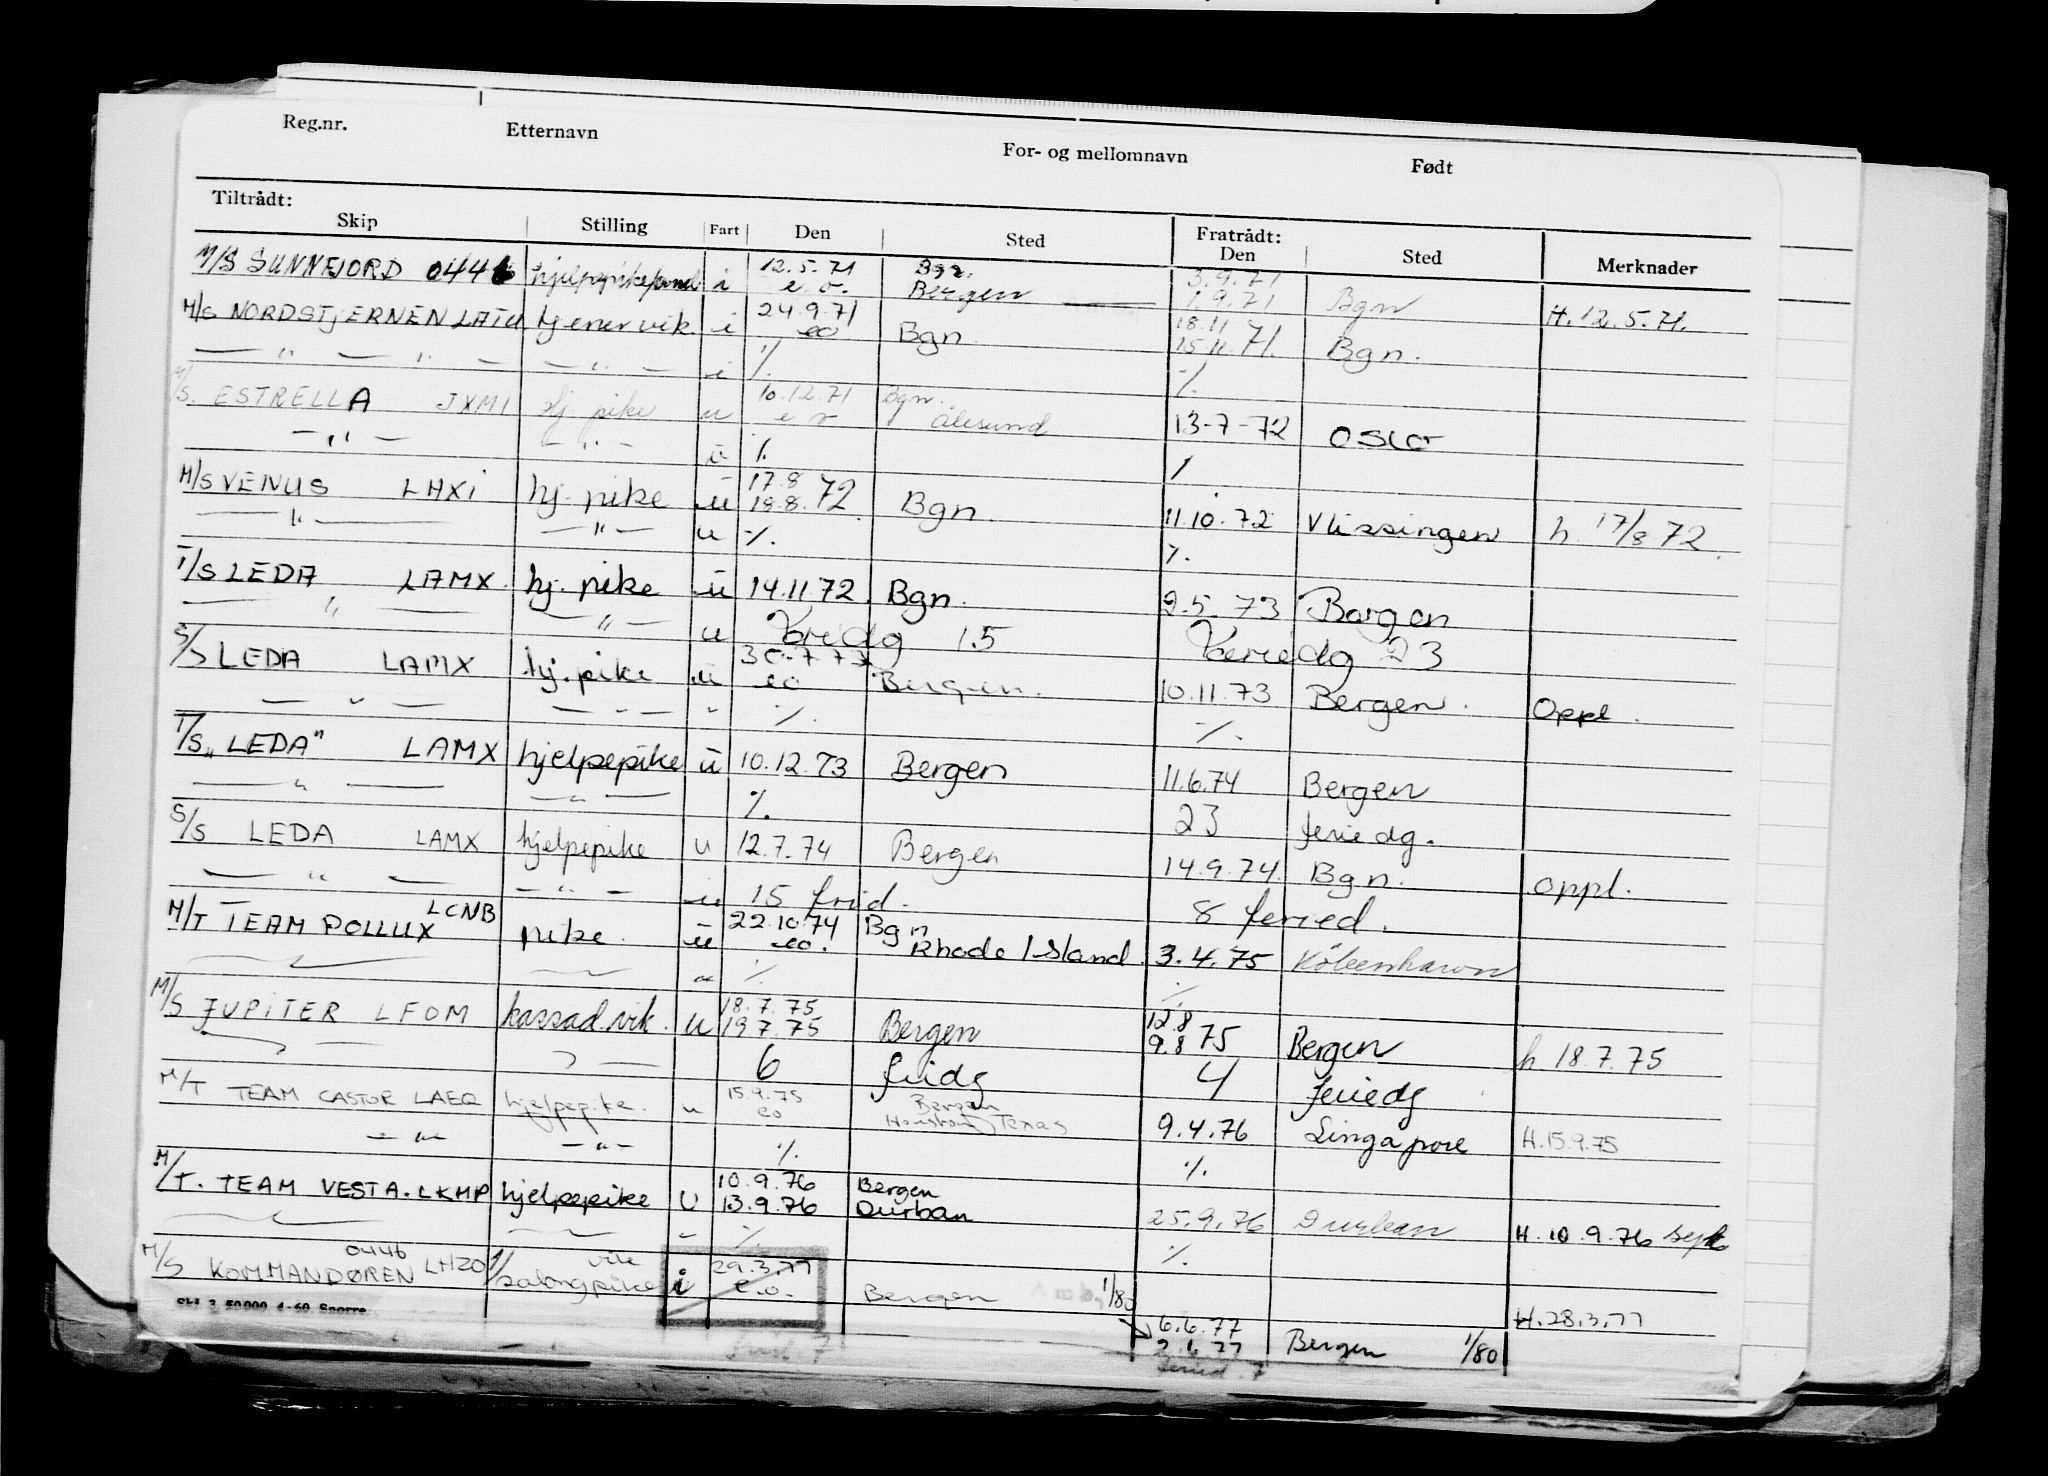 Reg.nr. Etternavn For- og mellomnavn Født
Tiltrådt: Fratrådt:
Skip Stilling Fart Den Sted Den Sted Merknader
M/S SUNNFJORD 0446 i 12.5.71 Bgn. 3.9.71
e.o. Bergen 1.9.71 Bgn H. 12.5.71.
M/S NORDSTJERNEN LATU tjener vik i 24.9.71 18.11
eo Bgn 15.11.71. Bgn.
— " — " — — " — i %. %.
M/S. ESTRELLA JXMI hj. pike u 10.12.71 Bgn.
e o Ålesund 13-7-72 OSLO
— " — — " — u %.
M/S VENUS LHXI hj. pike u 17.8
18.8.72 Bgn. 11.10.72 Vlissingen h. 17/8 72.
— " — — " — u %. %.
T/S LEDA LAMX. hj. pike u 14.11.72 Bgn. 2.5.73 Bergen
— " — — " — u 15 Feriedg 23
S/S LEDA LAMX hj. pike u 30.7.73
eo Bergen. 10.11.73 Bergen. Oppl.
— " — — " — " %. %.
T/S "LEDA" LAMX hjelpepike u 10.12.73 Bergen 11.6.74 Bergen
— " — — " — %. 23 feriedg.
S/S LEDA LAMX hjelpepike u 12.7.74 Bergen 14.9.74. Bgn. oppl.
— " — — " — u 15 frid. 8 feried.
M/T TEAM POLLUX LCNB pike. u 22.10.74 Bgn
eo. Rhode Island 3.4.75 Köbenhavn
%. %.
M/S JUPITER LFOM kassad.vik. u 18.7.75 12.8
19.7.75 Bergen 9.8 75 Bergen h. 18.7.75
6 fridg 4 feriedg
M/T TEAM CASTOR LAEQ hjelpepike. u 15.9.75 Bergen
eo Houston, Texas 9.4.76 Singapore H.15.9.75
— " — — " — %. %.
M/T. TEAM VESTA. LKMP hjelpepike U 10.9.76 Bergen
13.9.76 Durban 25.9.76 Durban H. 10.9.76
%. %.
M/S KOMMANDØREN 0446 LHZO vik
salongpike i 29.3.77
e.o. Bergen 1/80 H.28.3.77
6.6.77
2.6.77 Bergen 1/80
Frid. 7 feried. 7
Skl. 3. 50.000. 4-69. Sporre.